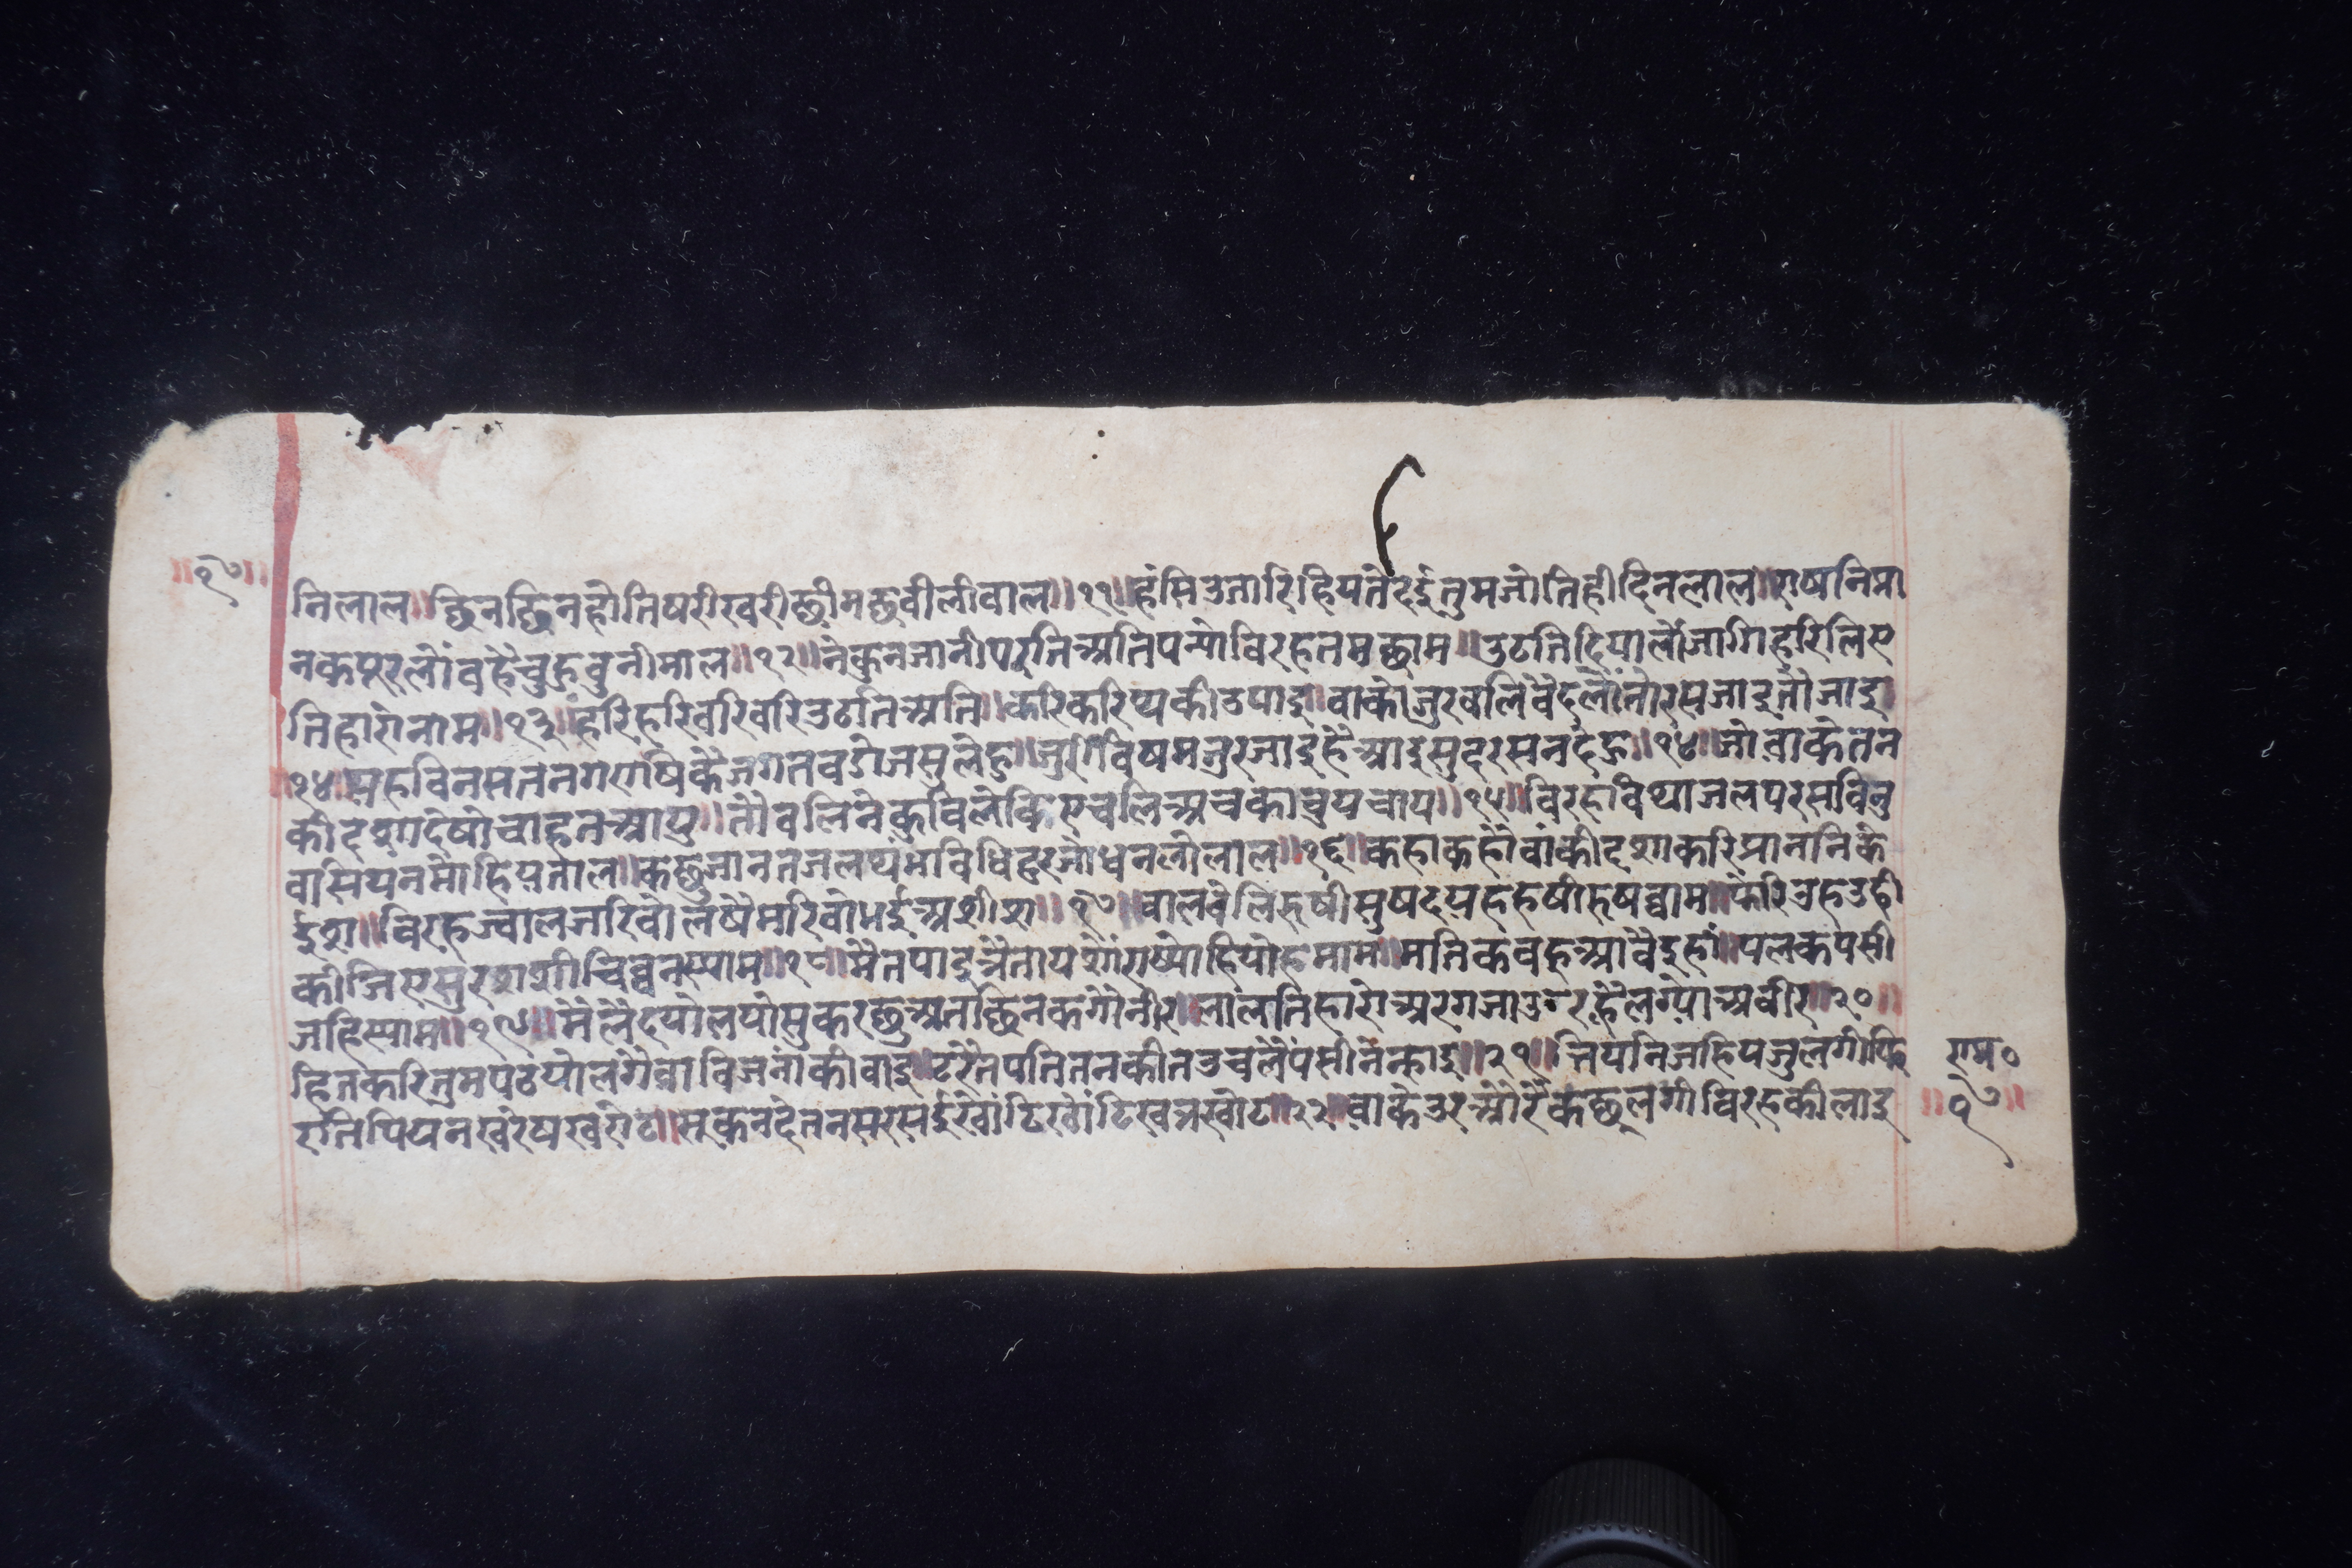 ॥१७॥
निलाल॥छिनछिनहोतिषरीखरीछीमछवीलीवाल॥११॥हंसिउतारिहियतेदईतुमजोतिहीदिनलाल॥राषनिप्रा
नकपूरलौंवहैचुहुवुनीमाल॥१२॥नेकुनजानीपरुतिअतिपर्योविरहतमछाम॥उठतिदियालौंजागिहरिलिए
तिहारोनाम॥१३॥हरिहरिवरिवरिउठतिअति॥करिकरिथकीउपाइ॥वाकोजुरवलिवैदलौंतोरसजाइतौजाइ
१४॥यहविनसतनगराषिकैजगतवडोजसुलेहु॥जुरीविषमजुरजाइहैआइसुदरसनदेहु॥१४॥जोवाकेतन
कीदशादेषोचाहतआपु॥तौवलिनेकुविलोकिएचलिअचकाचुपचाप॥१५॥विरहविथाजलपरसविनु
वासियतमोहियताल॥कछुजानतजलथंभविधिदुरजोधनलौलाल॥१६॥कहाकहौंवाकीदशाकरिप्राननिके
ईश॥विरहज्वालजरिवोलषैमरिवोभईअशीश॥१७॥वालवेलिसुषीसुषदयहरुषीरुषघाम॥फेरिउहउही
कीजिएसुरशशीचिघनस्याम॥१८॥मैतपाइत्रैतायशौंराष्योहियोहमाम॥मतिकवहूआवैइहां॥पलकपसी
जहिस्याम॥१९॥मैंलैदयोलयोसुकरछुअतछिनकगौनीर॥लालतिहारोअरगजाउरहैलग्योअवीर॥२०॥
हितकरितुमपठयोलगैवाविजनाकीवाइ॥टरेतपतितनकीतउचलेपसीनेन्हाइ॥२१॥तियनिजहियजुलगीफि
रतिपियनखरेषखरोट॥सुकनदेतनसरसईखोंटिखोंटिखतखोट॥२२॥वाकेउरऔरेंकछूलगीविरहकीलाइ
राम०
॥१७॥